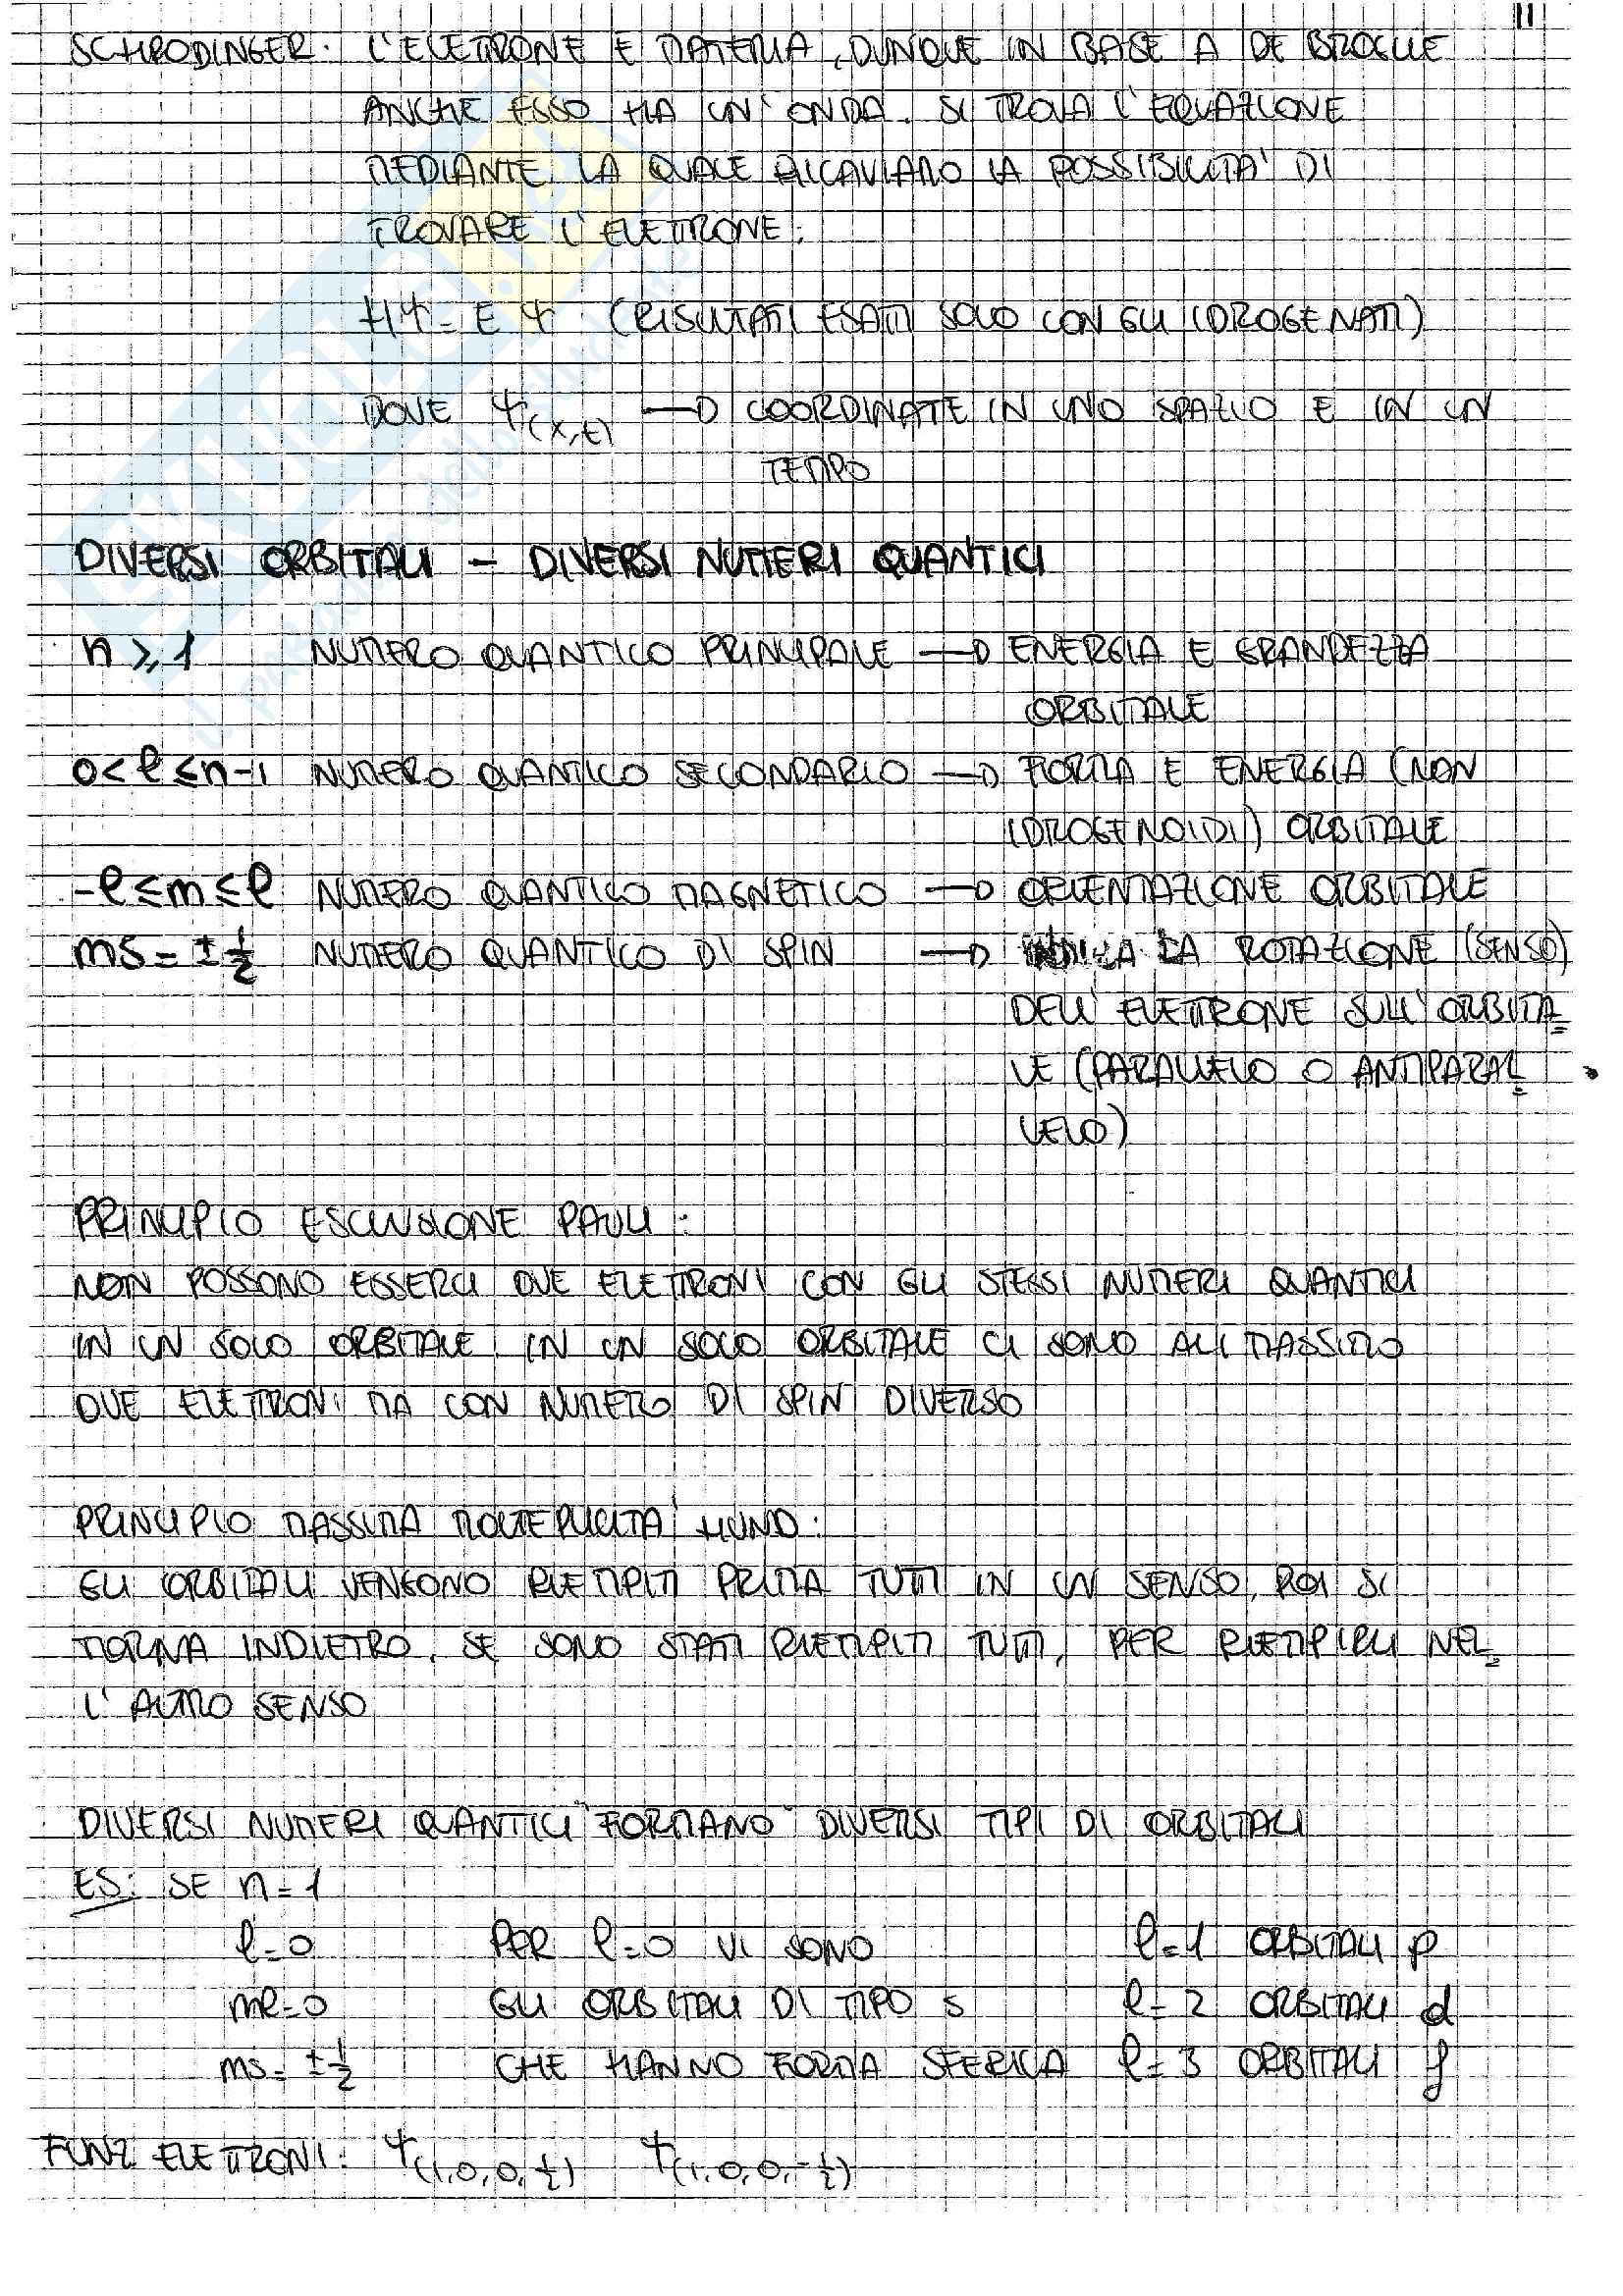 11
SCHRODINGER: L'ELETTRONE E MATERIA, DUNQUE IN BASE A DE BROGLIE
ANCHE ESSO HA UN'ONDA. SI TROVA L'EQUAZIONE
MEDIANTE LA QUALE RICAVIAMO LA POSSIBILITA' DI
TROVARE L'ELETTRONE:
HΨ = E Ψ (RISULTATI ESATTI SOLO CON GLI IDROGENATI)
DOVE Ψ(x,t) → COORDINATE IN UNO SPAZIO E IN UN
TEMPO
DIVERSI ORBITALI - DIVERSI NUMERI QUANTICI
n ≥ 1 NUMERO QUANTICO PRINCIPALE → ENERGIA E GRANDEZZA
ORBITALE
0 < ℓ ≤ n-1 NUMERO QUANTICO SECONDARIO → FORMA E ENERGIA (NON
IDROGENOIDI) ORBITALE
-ℓ ≤ m ≤ ℓ NUMERO QUANTICO MAGNETICO → ORIENTAZIONE ORBITALE
ms = ± 1/2 NUMERO QUANTICO DI SPIN → INDICA LA ROTAZIONE (SENSO)
DELL'ELETTRONE SULL'ORBITA=
LE (PARALLELO O ANTIPARAL=
LELO)
PRINCIPIO ESCLUSIONE PAULI:
NON POSSONO ESSERCI DUE ELETTRONI CON GLI STESSI NUMERI QUANTICI
IN UN SOLO ORBITALE. IN UN SOLO ORBITALE CI SONO AL MASSIMO
DUE ELETTRONI MA CON NUMERO DI SPIN DIVERSO
PRINCIPIO MASSIMA MOLTEPLICITA' HUND:
GLI ORBITALI VENGONO RIEMPITI PRIMA TUTTI IN UN SENSO, POI SI
TORNA INDIETRO, SE SONO STATI RIEMPITI TUTTI, PER RIEMPIRLI NEL=
L'ALTRO SENSO
DIVERSI NUMERI QUANTICI "FORMANO" DIVERSI TIPI DI ORBITALI
ES: SE n = 1
ℓ = 0 PER ℓ = 0 VI SONO ℓ = 1 ORBITALI p
mℓ = 0 GLI ORBITALI DI TIPO s ℓ = 2 ORBITALI d
ms = ± 1/2 CHE HANNO FORMA SFERICA ℓ = 3 ORBITALI f
FUNZ ELETTRONI: Ψ(1,0,0,1/2) Ψ(1,0,0,-1/2)